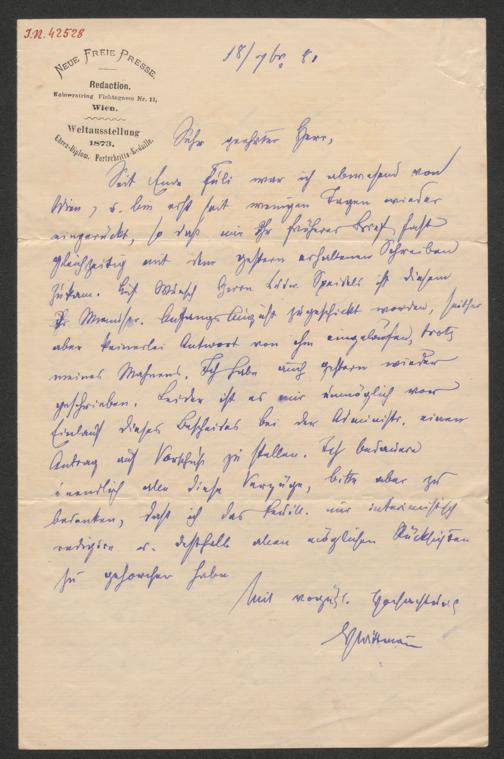 I.N. 42528
NEUE FREIE PRESSE.
Redaction,
Kolowratring Fichtegasse Nr. 11,
Wien.
Weltausstellung
1873.
Ehren-Diplom. Fortschritts-Medaille.
18/7br. 81
Sehr geehrter Herr,
Seit Ende Juli war ich abwesend von
Wien, u. bin erst seit wenigen Tagen wieder
eingerückt, so daß mir Ihr früherer Brief fast
gleichzeitig mit dem gestern erhaltenen Schreiben
zukam. Auf Wunsch Herrn Ludw. Speidels ist diesem
Ihr Manuscr. Anfangs August zugeschickt worden, seither
aber keinerlei Antwort von ihm eingelaufen, trotz
meines Mahnens. Ich habe auch gestern wieder
geschrieben. Leider ist es mir unmöglich vor
Einlauf dieses Bescheides bei der Administr. einen
Antrag auf Vorschuß zu stellen. Ich bedauere
unendlich alle diese Verzüge, bitte aber zu
bedenken, daß ich das Feuill. nur interimistisch
redigire u. deßhalb allen möglichen Rücksichten
zu gehorchen habe
Mit vorzügl. Hochachtung
Wittmann